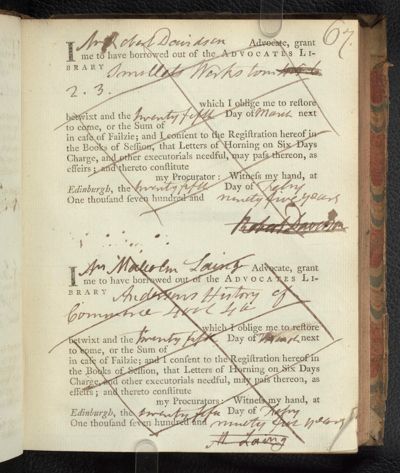 67.
I Mr Robert Davidson Advocate, grant
me to have borrowed out of the ADVOCATES LI-
BRARY Smollets Works tom
2. 3.
which I oblige me to reſtore
betwixt and the twenty fifth Day of March next
to come, or the Sum of
in caſe of Failzie; and I conſent to the Regiſtration hereof in
the Books of Seſſion, that Letters of Horning on Six Days
Charge, and other executorials needful, may paſs thereon, as
effeirs; and thereto conſtitute
my Procurator: Witneſs my hand, at
Edinburgh, the twenty fifth Day of Febry
One thouſand ſeven hundred and ninety five years
Robert Davidson
I Mr Malcolm Laing Advocate, grant
me to have borrowed out of the ADVOCATES LI-
BRARY Andersons History of
Commerce 4to
which I oblige me to reſtore
betwixt and the twenty fifth Day of March next
to come, or the Sum of
in caſe of Failzie; and I conſent to the Regiſtration hereof in
the Books of Seſſion, that Letters of Horning on Six Days
Charge, and other executorials needful, may paſs thereon, as
effeirs; and thereto conſtitute
my Procurators: Witneſs my hand, at
Edinburgh, the twenty fifth Day of Febry
One thouſand ſeven hundred and ninety five years
M Laing